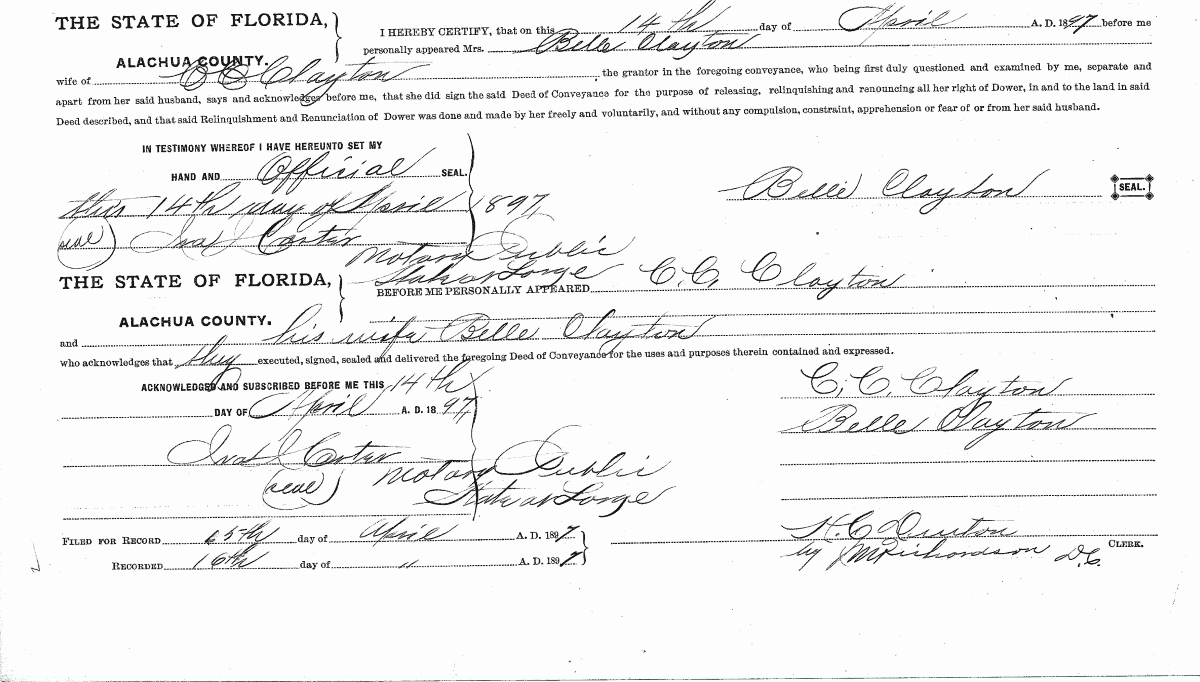 THE STATE OF FLORIDA,
ALACHUA COUNTY.
I HEREBY CERTIFY, that on this 14th day of April A. D. 1897 before me
personally appeared Mrs. Belle Clayton
wife of C C Clayton, the grantor in the foregoing conveyance, who being first duly questioned and examined by me, separate and
apart from her said husband, says and acknowledges before me, that she did sign the said Deed of Conveyance for the purpose of releasing, relinquishing and renouncing all her right of Dower, in and to the land in said
Deed described, and that said Relinquishment and Renunciation of Dower was done and made by her freely and voluntarily, and without any compulsion, constraint, apprehension or fear of or from her said husband.
IN TESTIMONY WHEREOF I HAVE HEREUNTO SET MY
HAND AND Official SEAL.
this 14th day of April 1897
Belle Clayton SEAL.
(seal) Ira J Carter
Notary Public
State at Large
THE STATE OF FLORIDA,
ALACHUA COUNTY.
BEFORE ME PERSONALLY APPEARED C. C. Clayton
and his wife Belle Clayton
who acknowledges that they executed, signed, sealed and delivered the foregoing Deed of Conveyance for the uses and purposes therein contained and expressed.
ACKNOWLEDGED AND SUBSCRIBED BEFORE ME THIS 14th
DAY OF April A. D. 1897
C. C. Clayton
Belle Clayton
Ira J Carter
Notary Public
(seal)
State at Large
FILED FOR RECORD 15th day of April A. D. 1897
RECORDED 16th day of " A. D. 1897
H. C. Denton
by J M Richardson D. C. CLERK.